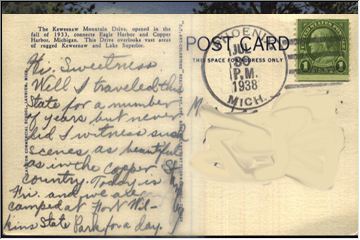 The Keweenaw Mountain Drive, opened in the
fall of 1933, connects Eagle Harbor and Copper
Harbor, Michigan. This Drive overlooks vast areas
of rugged Keweenaw and Lake Superior.
Hi. Sweetness
Well I traveled the
State for a number
of years but never
did I witness such
scenes as beautiful
as in the Copper
country. Today is
Fri. and we are
camped at Fort Wil-
kins State Park for a day.
POST CARD
THIS SPACE FOR ADDRESS ONLY
PHOENIX
JUL
30
P.M.
1938
MICH.
M
1